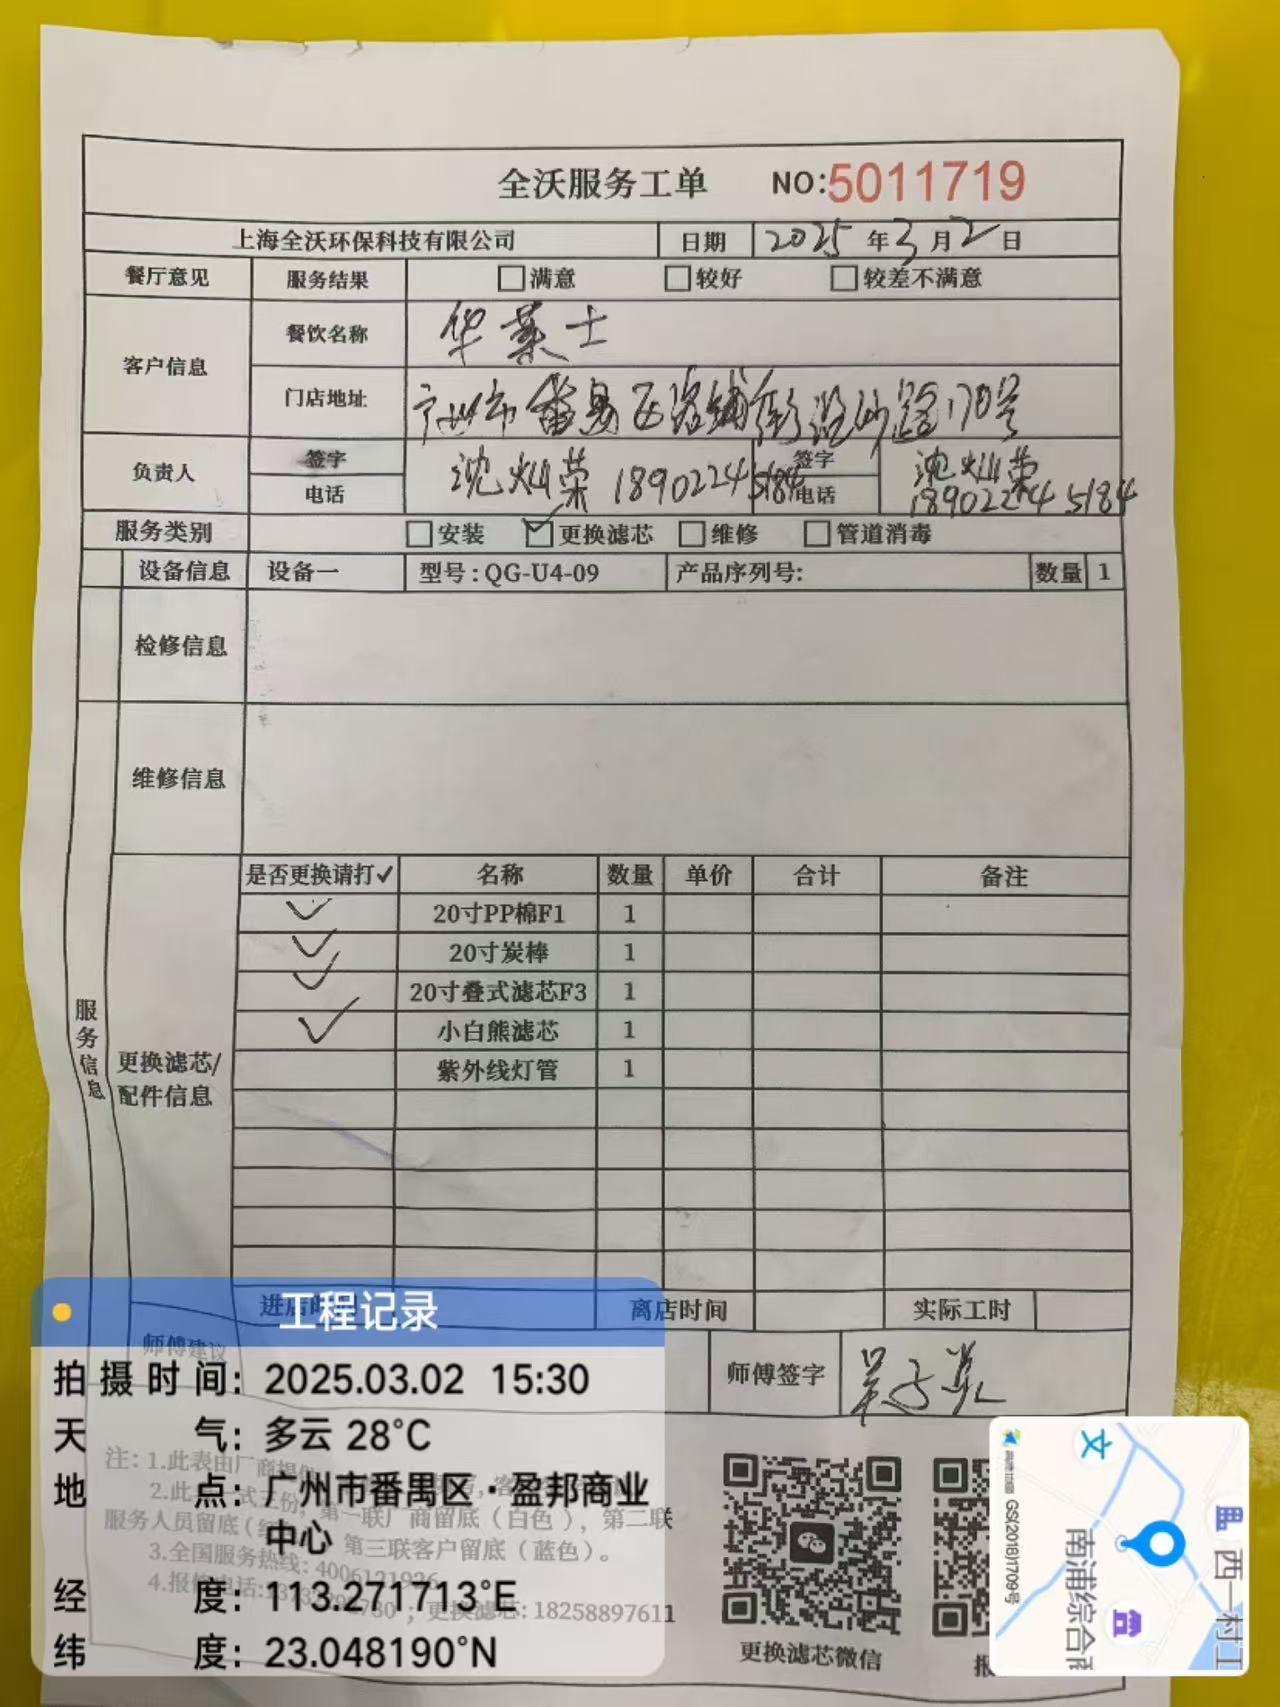 全沃服务工单 NO:5011719
上海全沃环保科技有限公司 日期 2025年3月2日
餐厅意见 服务结果 满意 较好 较差不满意
客户信息 餐饮名称 华莱士
门店地址 广州市番禺区洛铺街沿沙路170号
负责人 签字 沈灿荣 签字 沈灿荣
电话 18902245184 电话 18902245184
服务类别 安装 ✓更换滤芯 维修 管道消毒
设备信息 设备一 型号:QG-U4-09 产品序列号: 数量 1
检修信息
维修信息
服务信息
更换滤芯/
配件信息
是否更换请打✓ 名称 数量 单价 合计 备注
✓ 20寸PP棉F1 1
✓ 20寸炭棒 1
✓ 20寸叠式滤芯F3 1
✓ 小白熊滤芯 1
紫外线灯管 1
进店时间 离店时间 实际工时
师傅建议 师傅签字
注: 1.此表由厂商提供
服务人员留底 第一联厂商留底(白色),第二联
第三联客户留底(蓝色)。
3.全国服务热线:
4.报修电话: ,更换滤芯:18258897611
更换滤芯微信
工程记录
拍摄时间: 2025.03.02 15:30
天气: 多云 28°C
地点: 广州市番禺区·盈邦商业
中心
经度: 113.271713°E
纬度: 23.048190°N
文
南浦综合
西一村工
GS(2018)1709号